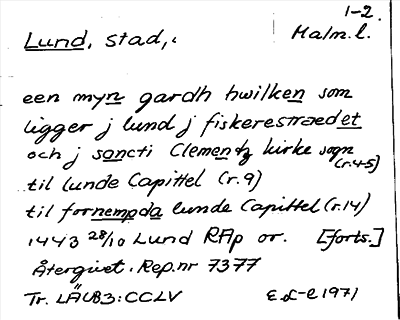 1-2.
Lund, stad,.
Malm. l.
een myn gardh hwilken som
ligger j lund j fiskerestrædet
och j sancti Clementz kirke sogn
(r.4-5)
til lunde Capittel (r.9)
til fornempda lunde Capittel (r.14)
1443 28/10 Lund RAp or. [forts.]
Återgivet. Rep.nr 7377
Tr. LÄUB3:CCLV
1971